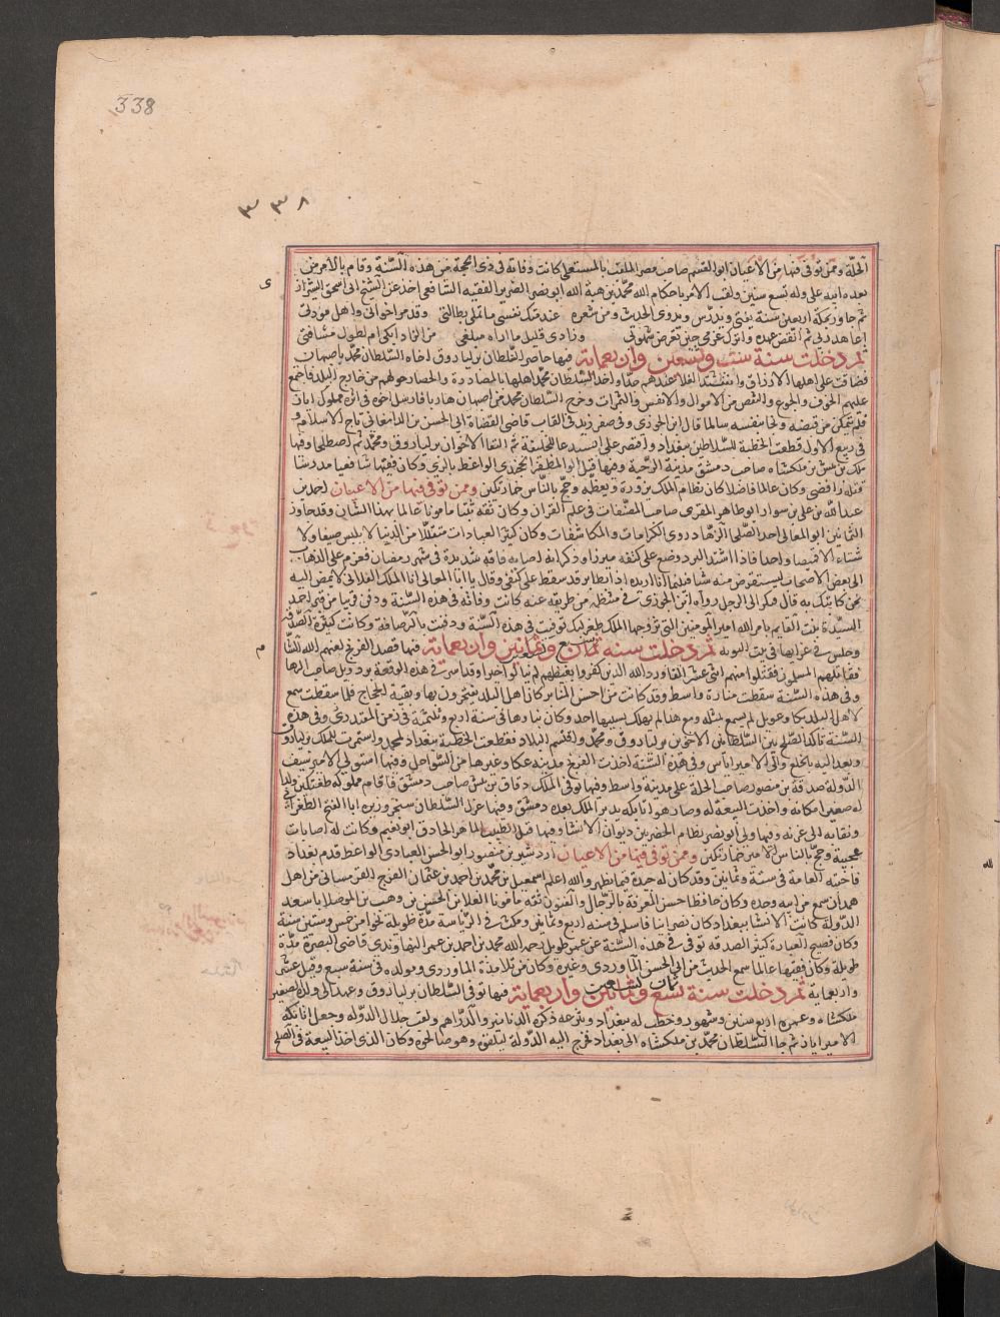 338
٣٣٨
الحلة وممن توفى فيها من الاعيان ابو القسم صاحب مصر الملقب بالمستعلى كانت وفاته فى ذى الحجة من هذه السنة وقام بالامر من
بعده ابنه على وله تسع سنين ولقب الامر باحكام الله محمد بن هبة الله ابو نصر الضرير الفقيه الشافعى اخذ عن الشيخ ابى اسحق الشيرازى
ثم جاور بمكة اربعين سنة يفتى ويدرس ويروى الحديث ومن شعره عدمتك نفسى ما تملى بطالتى وقد مر اخوانى واهل مودتى
اعاهد ربى ثم انقض عهده واترك عزمى حين تعرض شهوتى وزادى قليل ما اراه مبلغى من الزاد ابكى ام لطول مسافتى
ثم دخلت سنة ست وتسعين واربعماية فيها حاصر السلطان بركياروق اخاه السلطان محمد باصبهان
فضاقت على اهلها الارزاق واشتد الغلا عندهم جدا واخذ السلطان محمد اهلها بالمصادرة والحصار حولهم من خارج البلد فاجتمع
عليهم الخوف والجوع والنقص من الاموال والانفس والثمرات وخرج السلطان محمد من اصبهان هاربا فارسل اخوه فى اثره مملوكه اياز
فلم يتمكن من قبضه ونجا بنفسه سالما قال ابن الجوزى وفى صفر زيد فى القاب قاضى القضاة ابى الحسن بن الدامغانى تاج الاسلام و
فى ربيع الاول قطعت الخطبة للسلاطين ببغداد واقتصر على للخليفة ثم التقا الاخوان بركياروق ومحمد ثم اصطلحا وفيها
ملك بن ملكشاه صاحب دمشق مدينة الرحبة وفيها قتل ابو المظفر الخجندى الواعظ بالرى وكان فقيها شافعيا مدرسا
قتله رافضى وكان عالما فاضلا كان نظام الملك يزوره ويعظمه وحج بالناس خمارتكين وممن توفى فيها من الاعيان احمد بن
عبد الله بن على بن سوار ابو طاهر المقرى صاحب المصنفات فى علم القران وكان ثقة ثبتا مامونا عالما بهذا الشان وقد جاوز
الثمانين ابو المعالى احد الصلحا الزهاد ذوى الكرامات والمكاشفات وكان كثير العبادات متقللا من الدنيا لا يلبس صيفا ولا
شتاء الا قميصا واحدا فاذا اشتد البرد وضع على كتفه ميزرا وذكر انه اصابه فاقة شديدة فى شهر رمضان فعزم على الذهاب
الى بعض الاصحاب ليستقرض منه شيا فبينما انا اريده اذ انا بطاير قد سقط على كتفى وقال يا ابا المعالى انا الملك الفلانى لا تمض اليه
نحن كاتيك به قال فبكر الى الرجل رواه ابن الجوزى فى منتظمه من طريقه عنه كانت وفاته فى هذه السنة ودفن قريبا من قبر احمد
السيدة بنت القايم بامر الله امير المومنين التى تزوجها الملك طغرلبك توفيت فى هذه السنة ودفنت بالرصافة وكانت كثيرة الصدقة
وجلس فى عزايها فى بيت النوبة ثم دخلت سنة ثمان وثمانين واربعماية فيها قصد الفرنج لعنهم الله الشام
فقاتلهم المسلمون فقتلوا منهم اثنى عشر الفا ورد الله الذين كفروا بغيظهم لم ينالوا خيرا وقد اسر فى هذه الوقعة صاحب الرها
وفى هذه السنة سقطت منارة واسط وقد كانت من احسن المناير كان اهل البلد يفتخرون بها وبقبة الحجاج فلما سقطت سمع
لاهل البلد بكا وعويل لم يسمع مثله ومع هذا لم يهلك بسببها احد وكان بناوها فى سنة اربع وثلثمئة فى زمن المقتدر وفى هذه
السنة تاكد الصلح بين السلطانين الاخوين بركياروق ومحمد واقتسم البلاد فقطعت الخطبة ببغداد لمحمد واستمرت للملك بركياروق
وبعد اليه بالخلع والى الامير اياس وفى هذه السنة اخذت الفرنج مدينة عكا وغيرها من السواحل وفيها استولى الامير سيف
الدولة صدقة بن منصور صاحب الحلة على مدينة واسط وفيها توفى الملك دقاق بن تتش صاحب دمشق فاقام مملوكه طغتكين ولدا
له صغيرا مكانه واخذت البيعة له وصار هو اتابكه يدبر الملك بعده دمشق وفيها عزل السلطان سنجر وزيره ابا الفتح الطغراى
ونفاه الى غزنة وفيها ولى ابو نصر نظام الحضرتين ديوان الانشا وفيها قتل الطبيب الماهر الحاذق ابو نعيم وكانت له اصابات
عجيبة وحج بالناس الامير خمارتكين وممن توفى فيها من الاعيان اردشير بن منصور ابو الحسن العبادى الواعظ قدم بغداد
فاحبته العامة فى ستة وثمانين وقد كان له حدة فيما يظهر والله اعلم اسمعيل بن محمد بن احمد بن عثمان الفرج القومسانى من اهل
همدان سمع من ابيه وجده وكان حافظا حسن المعرفة بالرجال والفنون ثقة مامونا العلا بن الحسن بن وهب بن الموصلايا سعد
الدولة كاتب الانشا ببغداد كان نصرانيا فاسلم فى سنة اربع وثمانين ومكث فى الرياسة مدة طويلة نحوا من خمس وستين سنة
وكان فصيح العبارة كثير الصدقة توفى فى هذه السنة عن عمر طويل رحمه الله محمد بن احمد بن عمر النهاوندى قاضى البصرة مدة
طويلة وكان فقيها عالما سمع الحديث من ابى الحسن الماوردى وغيره وكان من تلامذة الماوردى ومولده فى سنة سبع وقيل عشر
واربعماية ثم دخلت سنة تسع وثمانين واربعماية فيها توفى السلطان بركياروق وعهد الى ولده الصغير
ملكشاه وعمره اربع سنين وشهور وخطب له ببغداد ونثر عند ذكره الدنانير والدراهم ولقب جلال الدولة وجعل اتابكه
الامير اياز ثم جا السلطان محمد بن ملكشاه الى بغداد فخرج اليه الدولة ليتلقوه وصالحوه وكان الذى اخذ البيعة فى الصلح